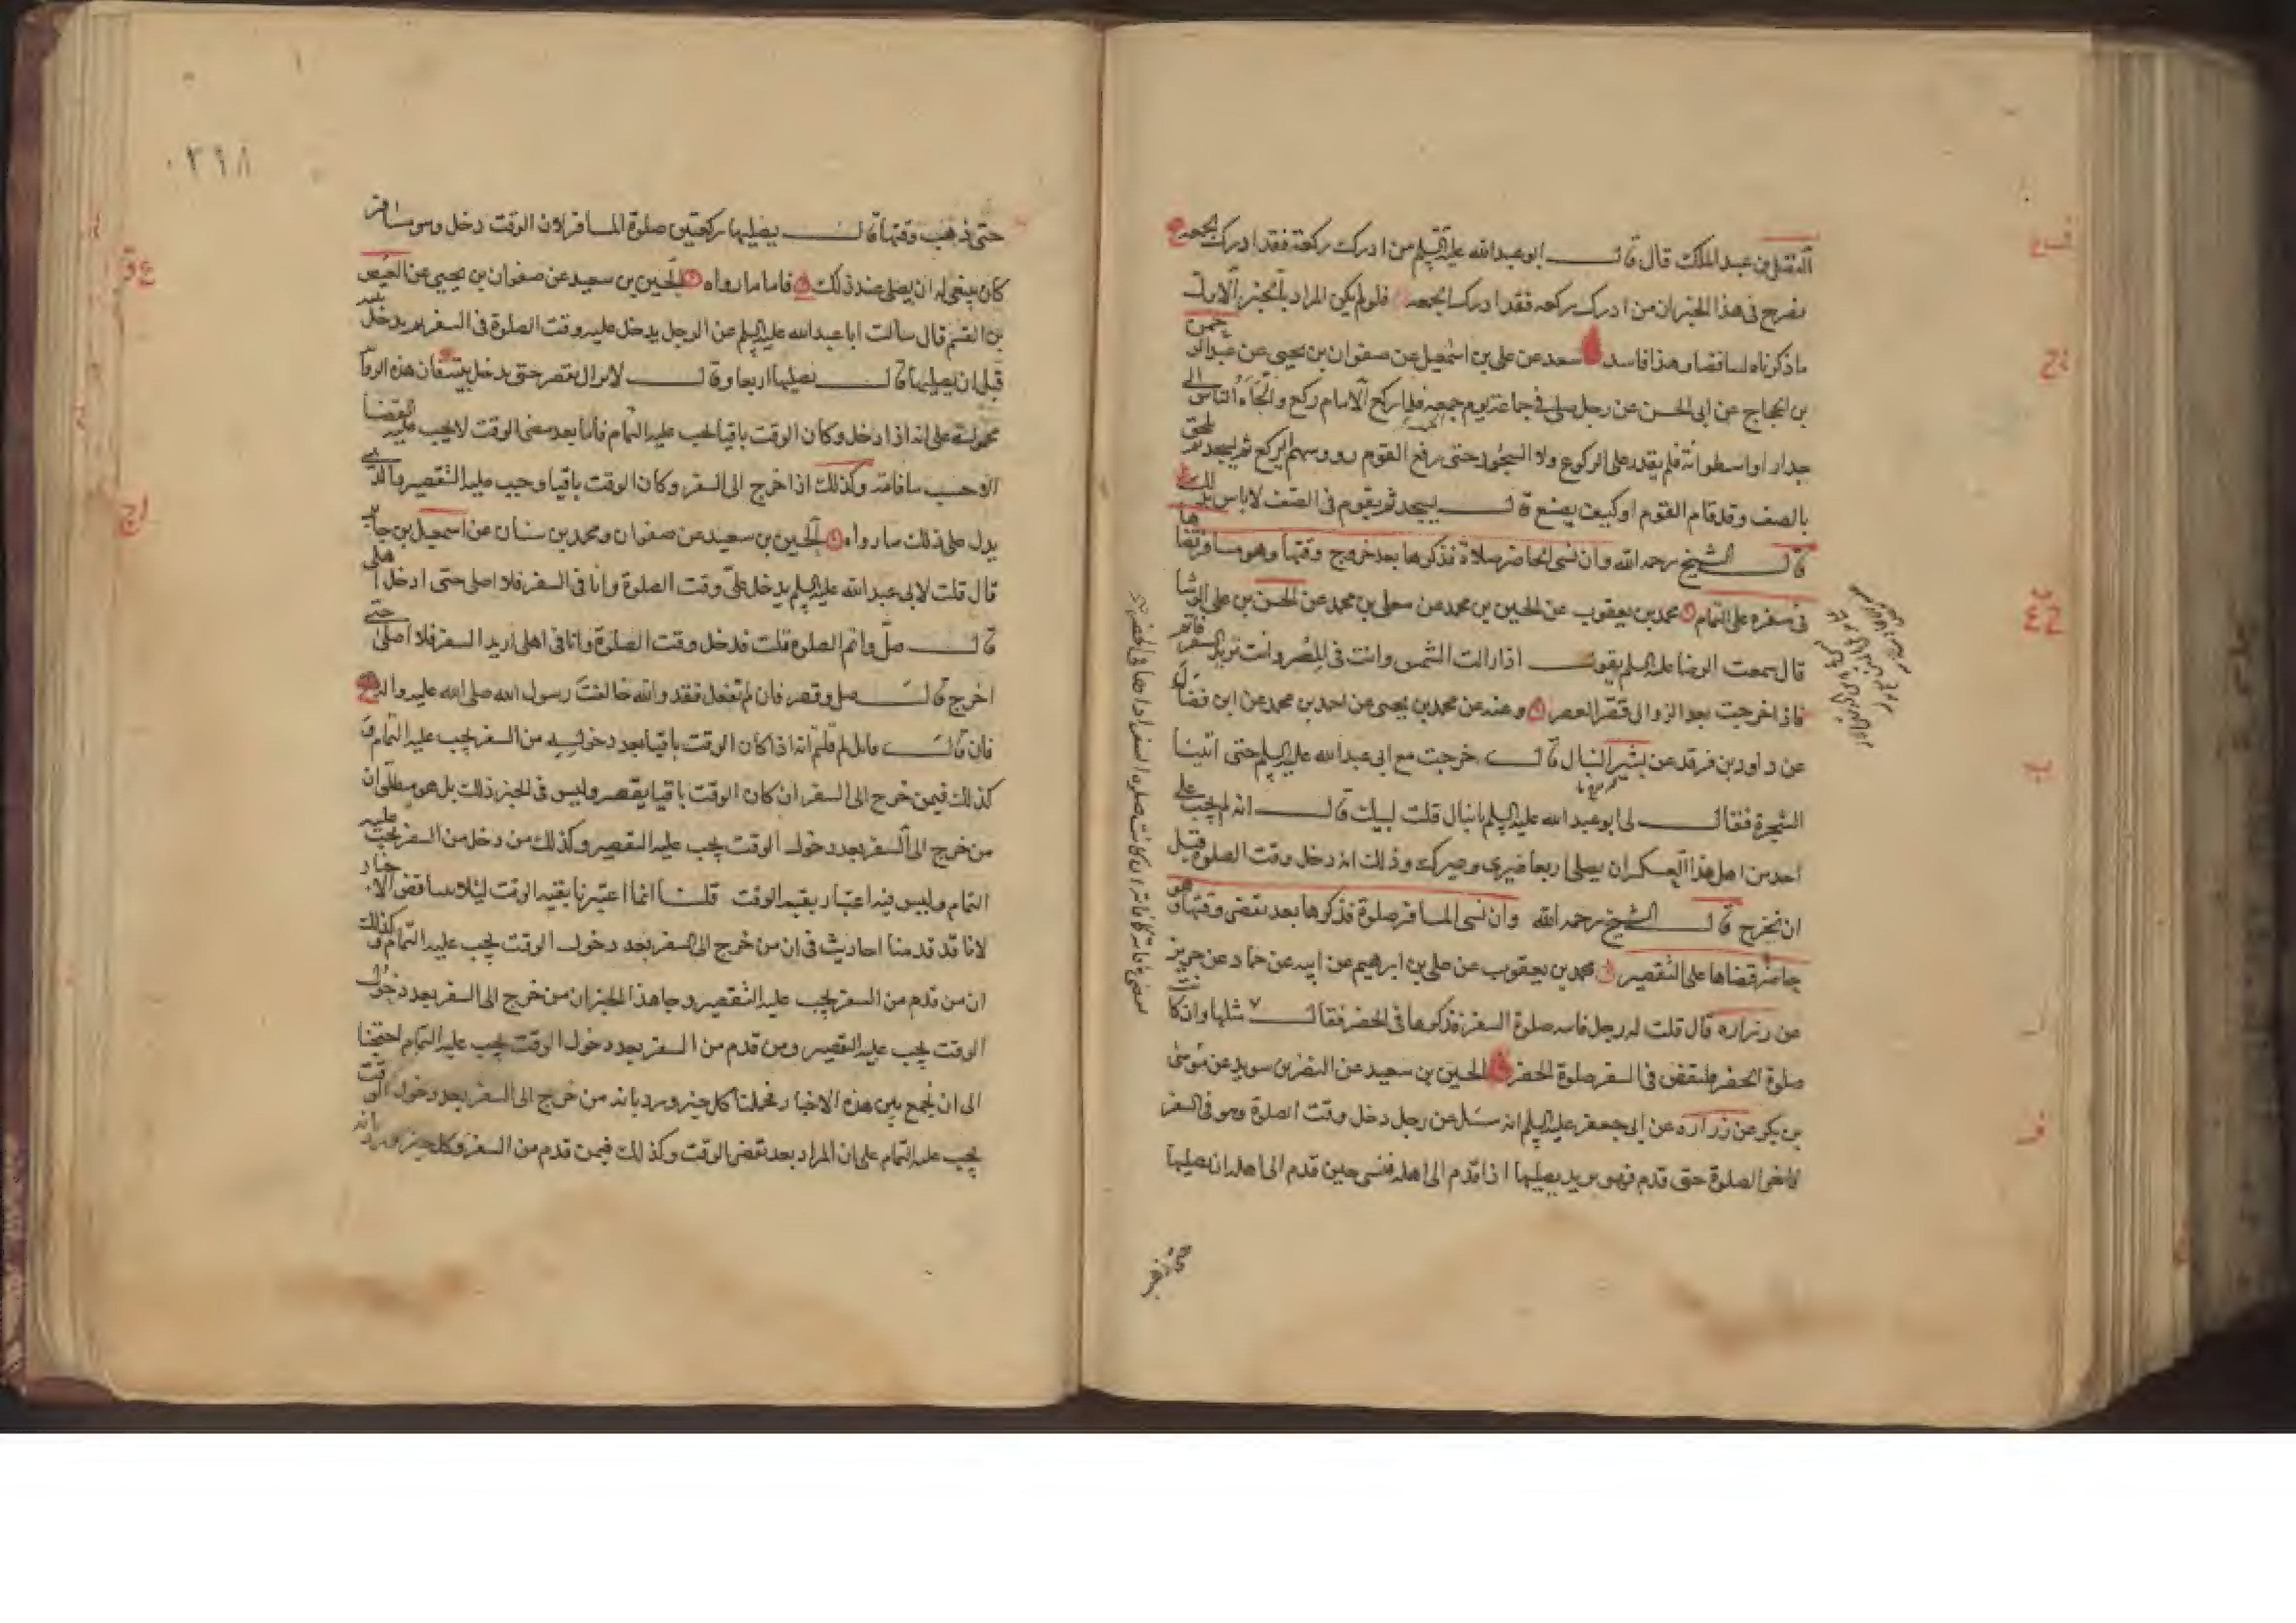 الفضل بن عبد الملك قال قال ابو عبد الله عليه السلم من ادرك ركعة فقد ادرك الجمعه
فصرح فى هذا الخبر ان من ادرك ركعه فقد ادرك الجمعه فلو لم يكن المراد بالخبر الاول
ما ذكرناه لتناقضا وهذا فاسد سعد عن على بن اسمعيل عن صفوان بن يحيى عن عبد الرحمن
بن الحجاج عن ابى الحسن عن رجل صلى فى جماعة يوم جمعه فلما ركع الامام ركع والجاه الناس الى
جدار او اسطوانة فلم يقدر على الركوع ولا السجود حتى رفع القوم رووسهم ايركع ثم يسجد ثم يلحق
بالصف وقد قام القوم او كيف يصنع قال يسجد ثم يقوم فى الصف لا باس بذلك
قال الشيخ رحمه الله وان نسى الحاضر صلاة فذكرها بعد خروج وقتها وهو مسافر قضاها
فى سفره على التمام محمد بن يعقوب عن الحسين بن محمد عن معلى بن محمد عن الحسن بن على الوشا
قال سمعت الرضا عليه السلم يقول اذا زالت الشمس وانت فى المصر وانت تريد السفر فاتم
فاذا خرجت بعد الزوال قصر العصر وعنه عن محمد بن يحيى عن احمد بن محمد عن ابن فضال
عن داود بن فرقد عن بشير النبال قال خرجت مع ابى عبد الله عليه السلم حتى اتينا
الشجرة فقال لى ابو عبد الله عليه السلم يا نبال قلت لبيك قال انه لم يجب على
احد من اهل هذا العسكر ان يصلى اربعا غيرى وغيرك وذلك انه دخل وقت الصلوة قبل
ان نخرج قال الشيخ رحمه الله وان نسى المسافر صلوة فذكرها بعد تقضى وقتها وهو
حاضر قضاها على التقصير محمد بن يعقوب عن على بن ابرهيم عن ابيه عن حماد عن حريز
عن زراره قال قلت له رجل فاتته صلوة السفر فذكرها فى الحضر فقال مثلها وان كانت
صلوة الحضر فليقض فى السفر صلوة الحضر الحسين بن سعيد عن النضر بن سويد عن موسى
بن بكر عن زراره عن ابى جعفر عليه السلم انه سئل عن رجل دخل وقت الصلوة وهو فى السفر
فاخر الصلوة حتى قدم فهو يريد يصليها اذا قدم الى اهله فنسى حين قدم الى اهله ان يصليها
حتى ذهب وقتها قال يصليها ركعتين صلوة المسافر لان الوقت دخل وهو مسافر
كان ينبغى له ان يصلى عند ذلك فاما ما رواه الحسين بن سعيد عن صفوان بن يحيى عن العيص
بن القسم قال سالت ابا عبد الله عليه السلم عن الرجل يدخل عليه وقت الصلوة فى السفر ثم يدخل بيته
قبل ان يصليها قال يصليها اربعا وقال لا يزال يقصر حتى يدخل بيته فان هذه الروا
محمولة على انه اذا دخل وكان الوقت باقيا يجب عليه التمام فاما بعد مضى الوقت لا يجب عليه القضا
الا وحسب ما فاته وكذلك اذا خرج الى السفر وكان الوقت باقيا وجب عليه التقصير والذى
يدل على ذلك ما رواه الحسين بن سعيد عن صفوان ومحمد بن سنان عن اسمعيل بن جابر
قال قلت لابى عبد الله عليه السلم يدخل على وقت الصلوة وانا فى السفر فلا اصلى حتى ادخل اهلى
قال صل واتم الصلوة قلت فدخل وقت الصلوة وانا فى اهلى اريد السفر فلا اصلى حتى
اخرج قال صل وقصر فان لم تفعل فقد والله خالفت رسول الله صلى الله عليه واله
فان قال قائل لم قلتم انه اذا كان الوقت باقيا بعد دخوله من السفر يجب عليه التمام و
كذلك فيمن خرج الى السفر ان كان الوقت باقيا يقصر وليس فى الخبر ذلك بل هو مطلق ان
من خرج الى السفر بعد دخول الوقت يجب عليه التقصير وكذلك من دخل من السفر يجب عليه
التمام وليس فيه اعتبار بقيه الوقت قلنا انما اعتبرنا بقيه الوقت لئلا يتناقض الاخبار
لانا قد قدمنا احاديث فى ان من خرج الى السفر بعد دخول الوقت يجب عليه التمام وكذلك
ان من قدم من السفر يجب عليه التقصير وجا هذا الخبر ان من خرج الى السفر بعد دخول
الوقت يجب عليه التقصير ومن قدم من السفر بعد دخول الوقت يجب عليه التمام احتجنا
الى ان نجمع بين هذه الاخبار فحملنا كل خبر ورد بانه من خرج الى السفر بعد دخول الوقت
يجب عليه التمام على ان المراد بعد تقضى الوقت وكذلك فيمن قدم من السفر وكل خبر ورد بانه